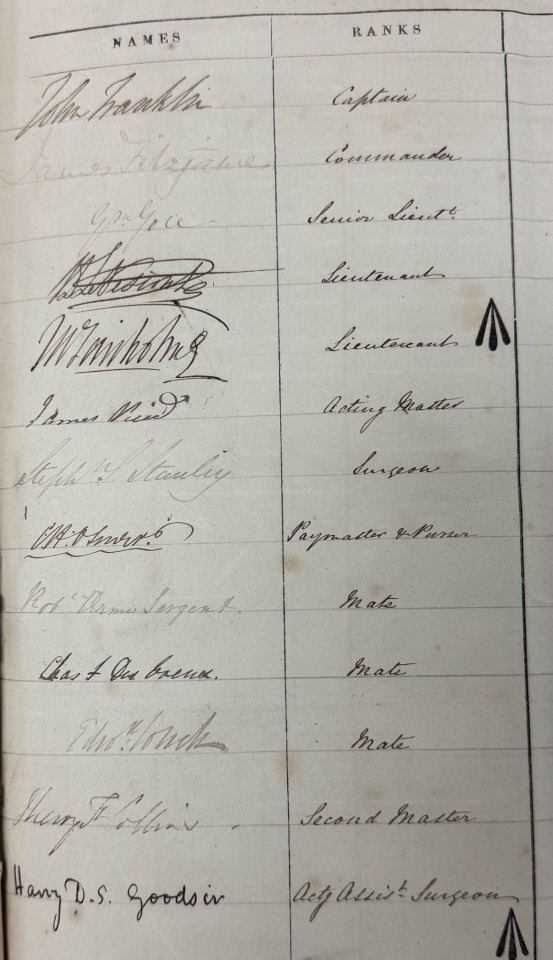 NAMES RANKS
John Franklin Captain
James Fitzjames Commander
Gm Gore Senior Lieutt.
Lieutenant
Lieutenant
James Reid Acting Master
Stephn S. Stanley Surgeon
Paymaster & Purser
Robt Orme Sargent. Mate
Chas F Des Voeux. Mate
Edwd Couch Mate
Henry F Collins Second Master
Harry D. S. Goodsir Actg Assist. Surgeon